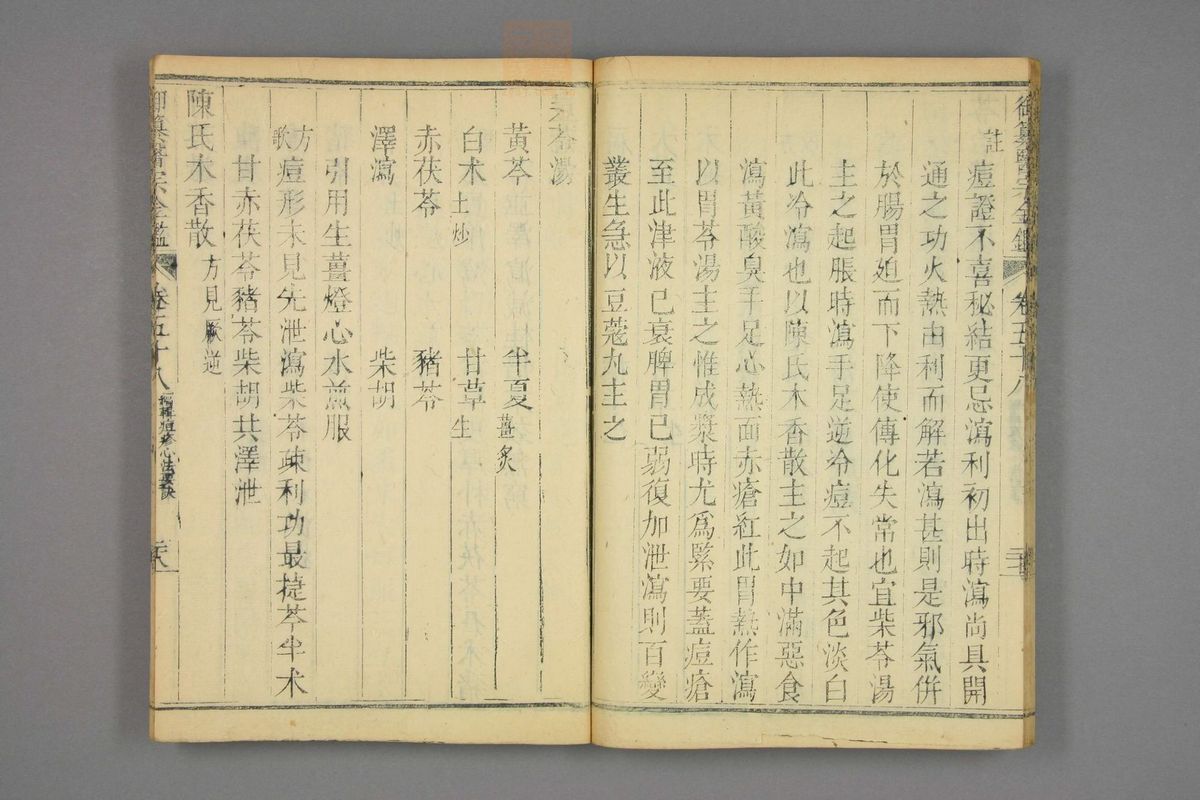 御纂醫宗金鑑 卷五十八
註 痘證不喜秘結更忌瀉利初出時瀉尚具開
通之功火熱由利而解若瀉甚則是邪氣併
於腸胃廹而下降使傳化失常也宜柴苓湯
主之起脹時瀉手足逆冷痘不起其色淡白
此冷瀉也以陳氏木香散主之如中滿惡食
瀉黃酸臭手足心熱面赤瘡紅此胃熱作瀉
以胃苓湯主之惟成漿時尤爲緊要蓋痘瘡
至此津液已衰脾胃已弱復加泄瀉則百變
叢生急以豆蔻丸主之
柴苓湯
黃芩 半夏薑炙
白术土炒 甘草生
赤茯苓 豬苓
澤瀉 柴胡
引用生薑燈心水煎服
方歌 痘形未見先泄瀉柴苓疎利功最捷芩半术
甘赤茯苓豬苓柴胡共澤泄
陳氏木香散方見厥逆
御纂醫宗金鑑 卷五十八 編輯痘疹心法要訣